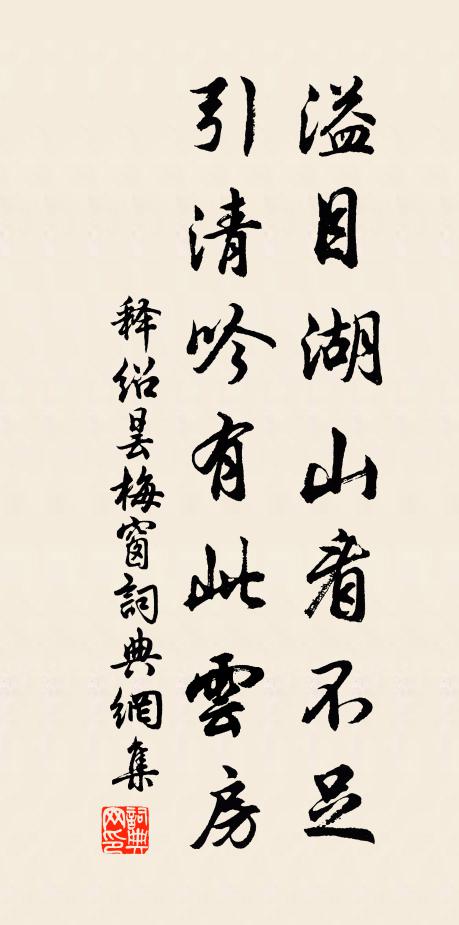 溢目湖山看不足
引清吟有此雲房
释绍昙梅窗詞典網集
詞典网印